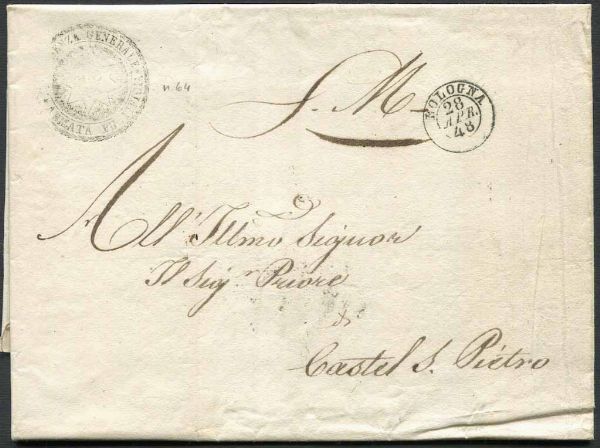 GENERALE
n. 64
S. M.
BOLOGNA
28
APR.
48
All' Illmo Signor
Il Sigr Priore
di
Castel S. Piétro